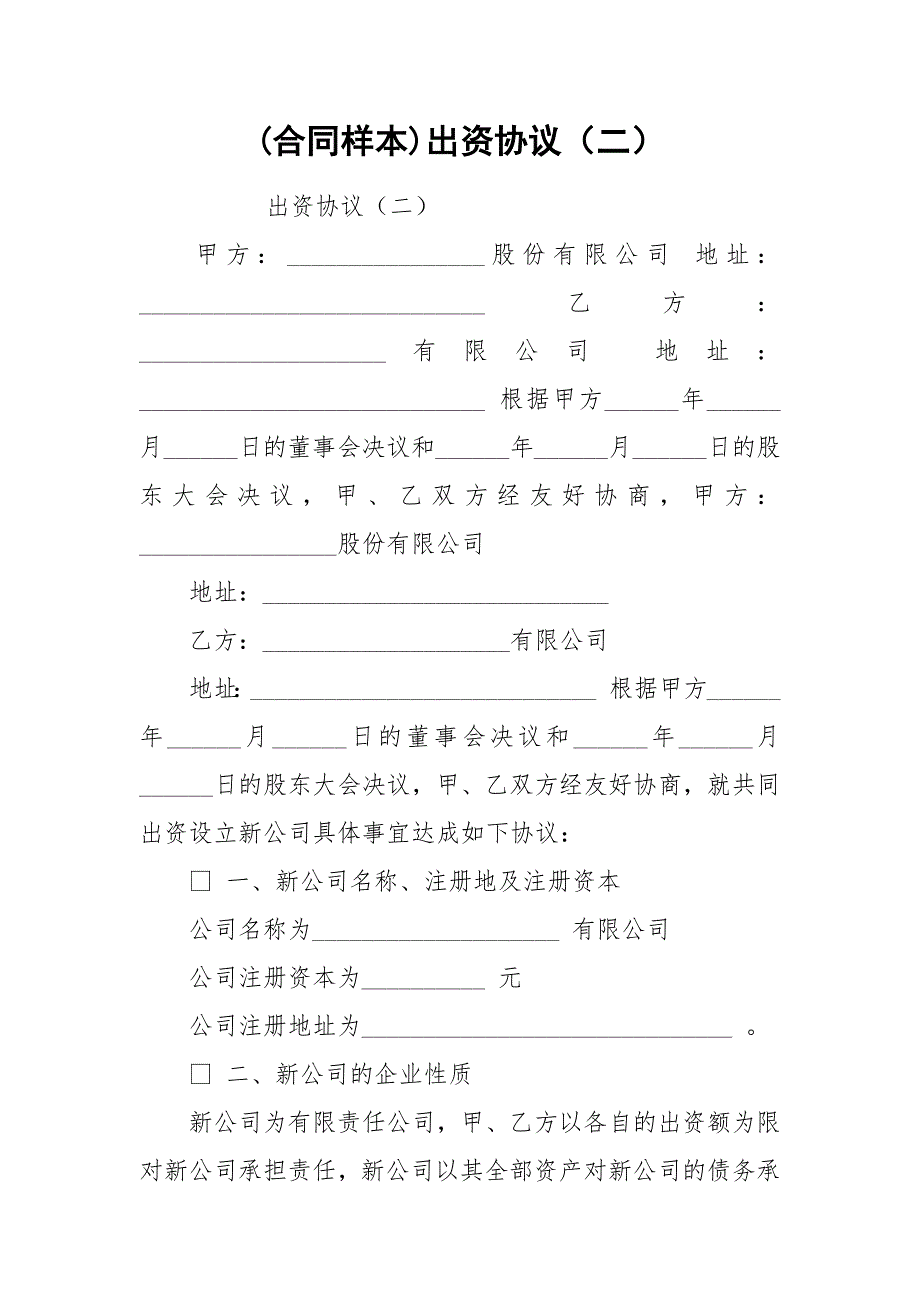 (合同样本)出资协议（二）
出资协议（二）
甲方：________________股份有限公司 地址：
____________________________ 乙方：
____________________有限公司 地址：
____________________________ 根据甲方______年______
月______日的董事会决议和______年______月______日的股
东大会决议，甲、乙双方经友好协商，甲方：
________________股份有限公司
地址：____________________________
乙方：____________________有限公司
地址：____________________________ 根据甲方______
年______月______日的董事会决议和______年______月
______日的股东大会决议，甲、乙双方经友好协商，就共同
出资设立新公司具体事宜达成如下协议：
□ 一、新公司名称、注册地及注册资本
公司名称为____________________ 有限公司
公司注册资本为__________ 元
公司注册地址为______________________________ 。
□ 二、新公司的企业性质
新公司为有限责任公司，甲、乙方以各自的出资额为限
对新公司承担责任，新公司以其全部资产对新公司的债务承